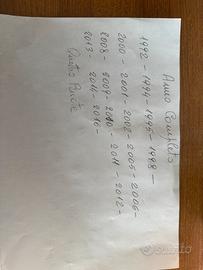 Anno Completo
1992 - 1994 - 1995 - 1998 -
2000 - 2001 - 2002 - 2005 - 2006 -
2008 - 2009 - 2010 - 2011 - 2012 -
2013 - 2014 - 2016 -
subito